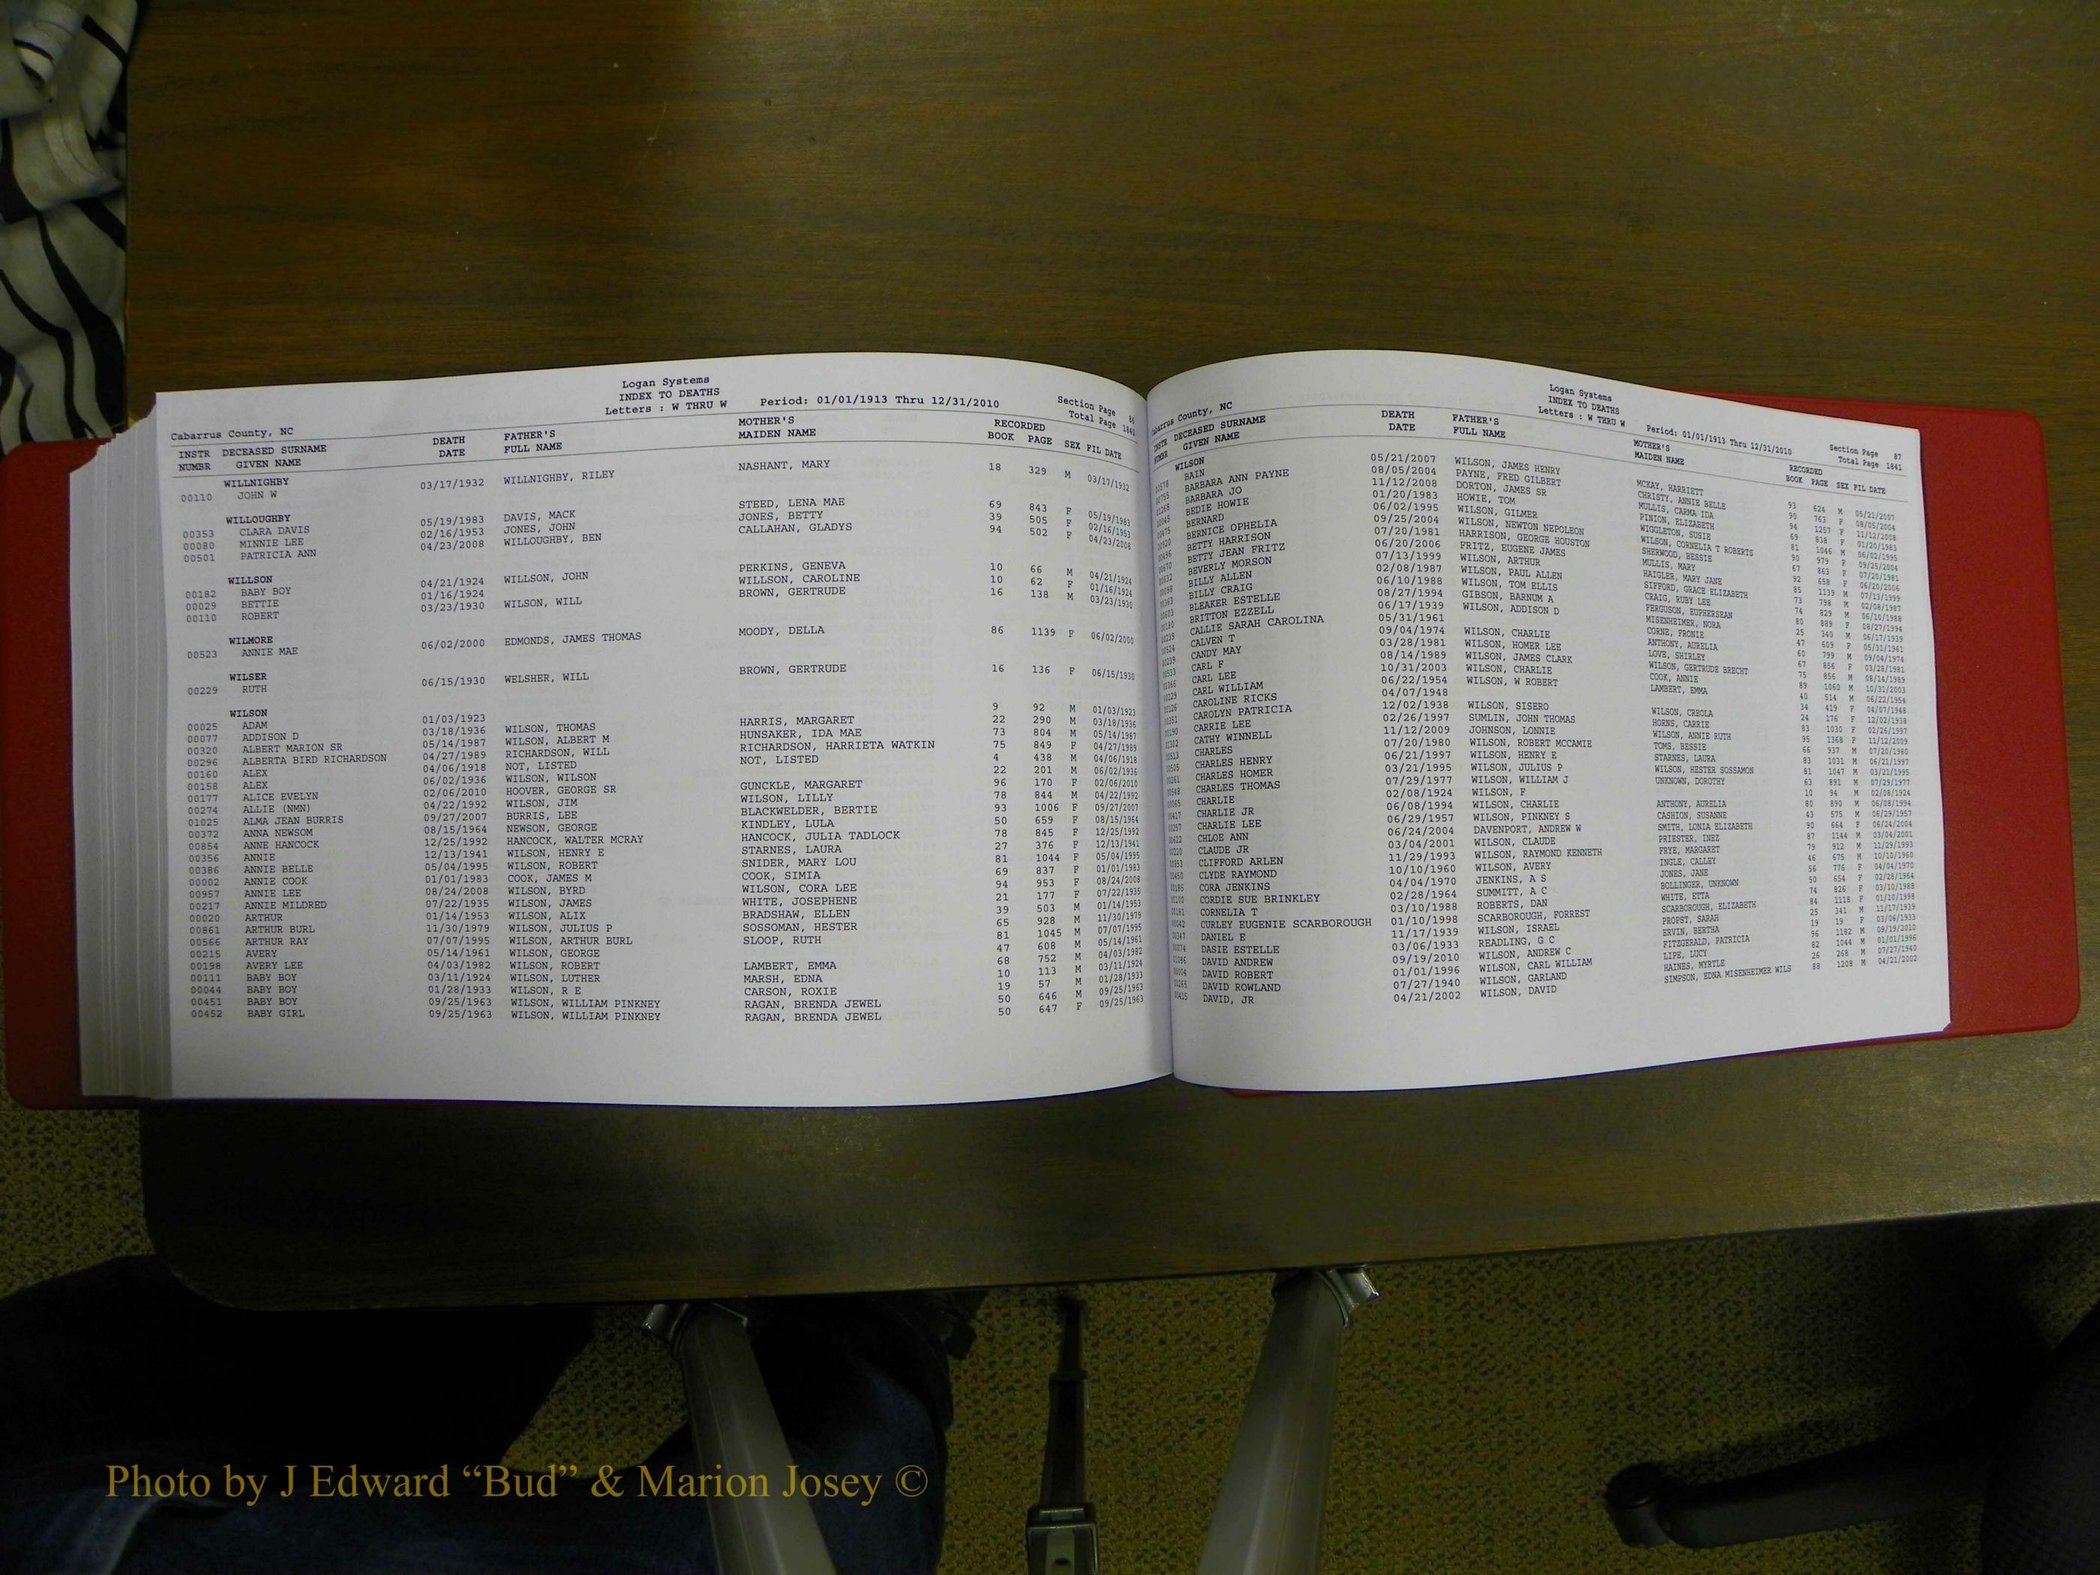 Logan Systems
INDEX TO DEATHS
Letters : W THRU W Period: 01/01/1913 Thru 12/31/2010
Section Page 86
Total Page 1841
Cabarrus County, NC
INSTR DECEASED SURNAME DEATH FATHER'S MOTHER'S RECORDED
NUMBR GIVEN NAME DATE FULL NAME MAIDEN NAME BOOK PAGE SEX FIL DATE
WILLNIGHBY
00110 JOHN W 03/17/1932 WILLNIGHBY, RILEY NASHANT, MARY 18 329 M 03/17/1932
WILLOUGHBY
00353 CLARA DAVIS 05/19/1983 DAVIS, MACK STEED, LENA MAE 69 843 F 05/19/1983
00080 MINNIE LEE 02/16/1953 JONES, JOHN JONES, BETTY 39 505 F 02/16/1953
00501 PATRICIA ANN 04/23/2008 WILLOUGHBY, BEN CALLAHAN, GLADYS 94 502 F 04/23/2008
WILLSON
00182 BABY BOY 04/21/1924 WILLSON, JOHN PERKINS, GENEVA 10 66 M 04/21/1924
00029 BETTIE 01/16/1924 WILLSON, CAROLINE 10 62 F 01/16/1924
00110 ROBERT 03/23/1930 WILSON, WILL BROWN, GERTRUDE 16 138 M 03/23/1930
WILMORE
00523 ANNIE MAE 06/02/2000 EDMONDS, JAMES THOMAS MOODY, DELLA 86 1139 F 06/02/2000
WILSER
00229 RUTH 06/15/1930 WELSHER, WILL BROWN, GERTRUDE 16 136 F 06/15/1930
WILSON
00025 ADAM 01/03/1923 9 92 M 01/03/1923
00077 ADDISON D 03/18/1936 WILSON, THOMAS HARRIS, MARGARET 22 290 M 03/18/1936
00320 ALBERT MARION SR 05/14/1987 WILSON, ALBERT M HUNSAKER, IDA MAE 73 804 M 05/14/1987
00296 ALBERTA BIRD RICHARDSON 04/27/1989 RICHARDSON, WILL RICHARDSON, HARRIETA WATKIN 75 849 F 04/27/1989
00160 ALEX 04/06/1918 NOT, LISTED NOT, LISTED 4 438 M 04/06/1918
00158 ALEX 06/02/1936 WILSON, WILSON 22 201 M 06/02/1936
00177 ALICE EVELYN 02/06/2010 HOOVER, GEORGE SR GUNCKLE, MARGARET 96 170 F 02/06/2010
00274 ALLIE (NMN) 04/22/1992 WILSON, JIM WILSON, LILLY 78 844 M 04/22/1992
01025 ALMA JEAN BURRIS 09/27/2007 BURRIS, LEE BLACKWELDER, BERTIE 93 1006 F 09/27/2007
00372 ANNA NEWSOM 08/15/1964 NEWSON, GEORGE KINDLEY, LULA 50 659 F 08/15/1964
00854 ANNE HANCOCK 12/25/1992 HANCOCK, WALTER MCRAY HANCOCK, JULIA TADLOCK 78 845 F 12/25/1992
00356 ANNIE 12/13/1941 WILSON, HENRY E STARNES, LAURA 27 376 F 12/13/1941
00386 ANNIE BELLE 05/04/1995 WILSON, ROBERT SNIDER, MARY LOU 81 1044 F 05/04/1995
00002 ANNIE COOK 01/01/1983 COOK, JAMES M COOK, SIMIA 69 837 F 01/01/1983
00957 ANNIE LEE 08/24/2008 WILSON, BYRD WILSON, CORA LEE 94 953 F 08/24/2008
00217 ANNIE MILDRED 07/22/1935 WILSON, JAMES WHITE, JOSEPHENE 21 177 F 07/22/1935
00020 ARTHUR 01/14/1953 WILSON, ALIX BRADSHAW, ELLEN 39 503 M 01/14/1953
00861 ARTHUR BURL 11/30/1979 WILSON, JULIUS P SOSSOMAN, HESTER 65 928 M 11/30/1979
00566 ARTHUR RAY 07/07/1995 WILSON, ARTHUR BURL SLOOP, RUTH 81 1045 M 07/07/1995
00215 AVERY 05/14/1961 WILSON, GEORGE 47 608 M 05/14/1961
00198 AVERY LEE 04/03/1982 WILSON, ROBERT LAMBERT, EMMA 68 752 M 04/03/1982
00111 BABY BOY 03/11/1924 WILSON, LUTHER MARSH, EDNA 10 113 M 03/11/1924
00044 BABY BOY 01/28/1933 WILSON, R E CARSON, ROXIE 19 57 M 01/28/1933
00451 BABY BOY 09/25/1963 WILSON, WILLIAM PINKNEY RAGAN, BRENDA JEWEL 50 646 M 09/25/1963
00452 BABY GIRL 09/25/1963 WILSON, WILLIAM PINKNEY RAGAN, BRENDA JEWEL 50 647 F 09/25/1963
Logan Systems
INDEX TO DEATHS
Letters : W THRU W Period: 01/01/1913 Thru 12/31/2010
Section Page 87
Total Page 1841
Cabarrus County, NC
INSTR DECEASED SURNAME DEATH FATHER'S MOTHER'S RECORDED
NUMBR GIVEN NAME DATE FULL NAME MAIDEN NAME BOOK PAGE SEX FIL DATE
WILSON
BAIN 05/21/2007 WILSON, JAMES HENRY MCKAY, HARRIETT 93 624 M 05/21/2007
BARBARA ANN PAYNE 08/05/2004 PAYNE, FRED GILBERT CHRISTY, ANNIE BELLE 90 763 F 08/05/2004
BARBARA JO 11/12/2008 DORTON, JAMES SR MULLIS, CARMA IDA 94 1257 F 11/12/2008
BEDIE HOWIE 01/20/1983 HOWIE, TOM PINION, ELIZABETH 69 838 F 01/20/1983
BERNARD 06/02/1995 WILSON, GILMER WIGGLETON, SUSIE 81 1046 M 06/02/1995
BERNICE OPHELIA 09/25/2004 WILSON, NEWTON NEPOLEON WILSON, CORNELIA T ROBERTS 90 979 F 09/25/2004
BETTY HARRISON 07/20/1981 HARRISON, GEORGE HOUSTON SHERWOOD, BESSIE 67 863 F 07/20/1981
BETTY JEAN FRITZ 06/20/2006 FRITZ, EUGENE JAMES MULLIS, MARY 92 658 F 06/20/2006
BEVERLY MORSON 07/13/1999 WILSON, ARTHUR HAIGLER, MARY JANE 85 1139 M 07/13/1999
BILLY ALLEN 02/08/1987 WILSON, PAUL ALLEN SIFFORD, GRACE ELIZABETH 73 798 M 02/08/1987
BILLY CRAIG 06/10/1988 WILSON, TOM ELLIS CRAIG, RUBY LEE 74 829 M 06/10/1988
BLEAKER ESTELLE 08/27/1994 GIBSON, BARNUM A FERGUSON, EUPHERSEAN 80 889 F 08/27/1994
BRITTON EZZELL 06/17/1939 WILSON, ADDISON D MISENHEIMER, NORA 25 340 M 06/17/1939
CALLIE SARAH CAROLINA 05/31/1961 CORNE, FRONIE 47 609 F 05/31/1961
CALVEN T 09/04/1974 WILSON, CHARLIE ANTHONY, AURELIA 60 799 M 09/04/1974
CANDY MAY 03/28/1981 WILSON, HOMER LEE LOVE, SHIRLEY 67 856 F 03/28/1981
CARL F 08/14/1989 WILSON, JAMES CLARK WILSON, GERTRUDE BRECHT 75 856 M 08/14/1989
CARL LEE 10/31/2003 WILSON, CHARLIE COOK, ANNIE 89 1060 M 10/31/2003
CARL WILLIAM 06/22/1954 WILSON, W ROBERT LAMBERT, EMMA 40 514 M 06/22/1954
CAROLINE RICKS 04/07/1948 34 419 F 04/07/1948
CAROLYN PATRICIA 12/02/1938 WILSON, SISERO WILSON, CREOLA 24 176 F 12/02/1938
CARRIE LEE 02/26/1997 SUMLIN, JOHN THOMAS HORNS, CARRIE 83 1030 F 02/26/1997
CATHY WINNELL 11/12/2009 JOHNSON, LONNIE WILSON, ANNIE RUTH 95 1368 F 11/12/2009
CHARLES 07/20/1980 WILSON, ROBERT MCCAMIE TOMS, BESSIE 66 937 M 07/20/1980
CHARLES HENRY 06/21/1997 WILSON, HENRY E STARNES, LAURA 83 1031 M 06/21/1997
CHARLES HOMER 03/21/1995 WILSON, JULIUS P WILSON, HESTER SOSSAMON 81 1047 M 03/21/1995
CHARLES THOMAS 07/29/1977 WILSON, WILLIAM J UNKNOWN, DOROTHY 63 891 M 07/29/1977
CHARLIE 02/08/1924 WILSON, F 10 94 M 02/08/1924
CHARLIE JR 06/08/1994 WILSON, CHARLIE ANTHONY, AURELIA 80 890 M 06/08/1994
CHARLIE LEE 06/29/1957 WILSON, PINKNEY S CASHION, SUSANNE 43 575 M 06/29/1957
CHLOE ANN 06/24/2004 DAVENPORT, ANDREW W SMITH, LONIA ELIZABETH 90 664 F 06/24/2004
CLAUDE JR 03/04/2001 WILSON, CLAUDE PRIESTER, INEZ 87 1144 M 03/04/2001
CLIFFORD ARLEN 11/29/1993 WILSON, RAYMOND KENNETH FRYE, MARGARET 79 912 M 11/29/1993
CLYDE RAYMOND 10/10/1960 WILSON, AVERY INGLE, CALLEY 46 675 M 10/10/1960
CORA JENKINS 04/04/1970 JENKINS, A S JONES, JANE 56 776 F 04/04/1970
CORDIE SUE BRINKLEY 02/28/1964 SUMMITT, A C BOLLINGER, UNKNOWN 50 654 F 02/28/1964
CORNELIA T 03/10/1988 ROBERTS, DAN WHITE, ETTA 74 826 F 03/10/1988
CURLEY EUGENIE SCARBOROUGH 01/10/1998 SCARBOROUGH, FORREST SCARBOROUGH, ELIZABETH 84 1118 F 01/10/1998
DANIEL E 11/17/1939 WILSON, ISRAEL PROPST, SARAH 25 341 M 11/17/1939
DASIE ESTELLE 03/06/1933 READLING, G C ERVIN, BERTHA 19 19 F 03/06/1933
DAVID ANDREW 09/19/2010 WILSON, ANDREW C FITZGERALD, PATRICIA 96 1182 M 09/19/2010
DAVID ROBERT 01/01/1996 WILSON, CARL WILLIAM LIPE, LUCY 82 1044 M 01/01/1996
DAVID ROWLAND 07/27/1940 WILSON, GARLAND HAINES, MYRTLE 26 268 M 07/27/1940
DAVID, JR 04/21/2002 WILSON, DAVID SIMPSON, EDNA MISENHEIMER WILS 88 1208 M 04/21/2002
Photo by J Edward “Bud” & Marion Josey ©